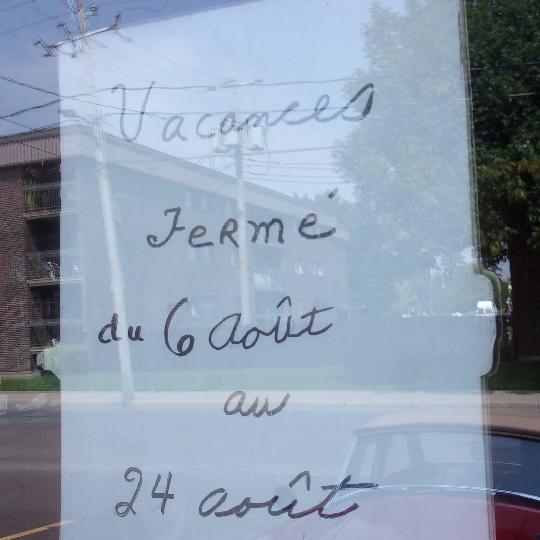 Vacances
Fermé
du 6 Août
au
24 août